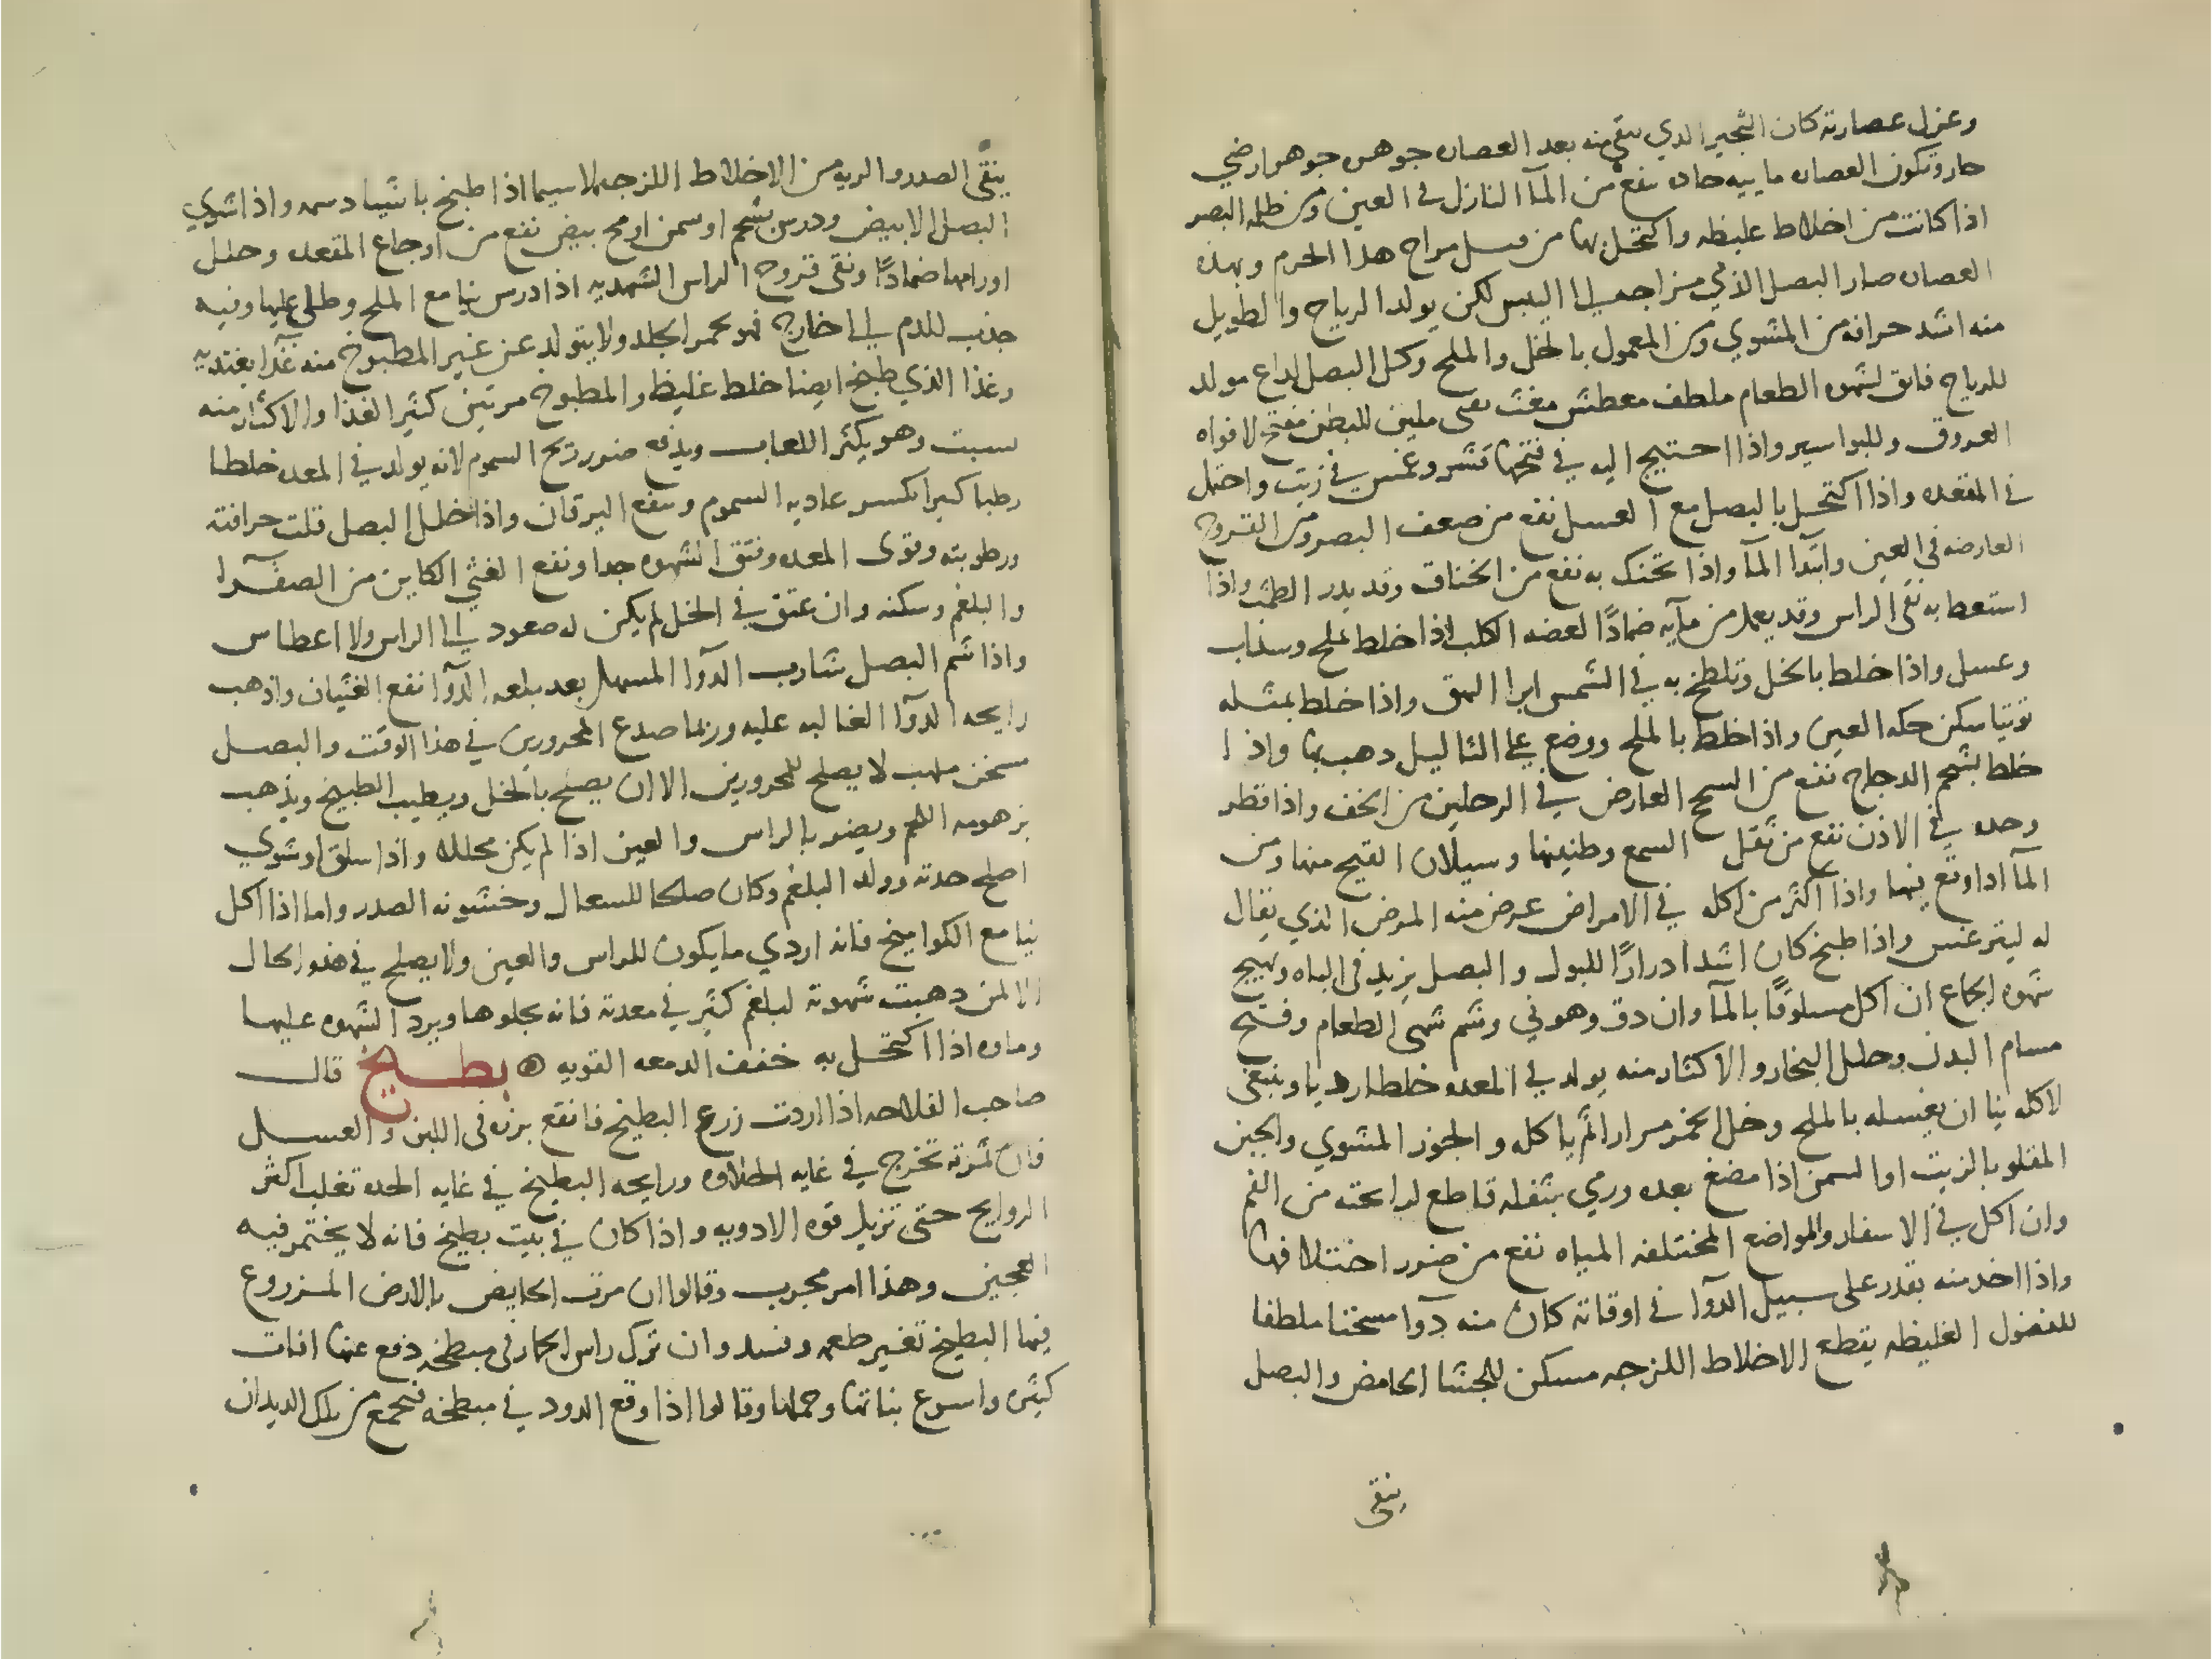 وعزل عصارته كان الثجير الدي يبقي منه بعد العصاره جوهره جوهر ارضي
حار وتكون العصاره ماييه حاره تنفع من المآ النازل في العين ومن ظلمه البصر
اذا كانت من اخلاط غليظه واكتحل بها من مراج هدا الحرم وبهذه
العصاره صار البصل الذي من اجميل الي اليبس لكن يولد الرياح والطويل
منه اشد حرافه من المشوي ومن المعمول بالخل والملح وكل البصل لداع مولد
للرياح فاتق لشهوه الطعام ملطف معطش مغث ملين للبطن مفتح لافواه
العروق وللبواسير واذا احتيج اليه في فتحها قشر وغمس في زيت واحتمل
في المقعده واذا اكتحل بالبصل مع العسل نفع من ضعف البصر ومن القروح
العارضه في العين وابتدا المآ واذا تحنك به نفع من الخناق وقد يدر الطمث واذا
استعط به نقي الراس وقد يعمل من مآيه ضمادًا لعضه الكلب اذا خلط بملح وسداب
وعسل واذا خلط بالخل وتلطخ به في الشمس ابرا البهق واذا خلط بمثله
توتيا سكن حكه العين واذا خلط بالملح ووضع علي الثاليل دهب بها واذا
خلط بشحم الدجاج نفع من السحج العارض في الرجلين من الخف واذا قطر
وحده في الاذن نفع من ثقل السمع وطنينها وسيلان القيح منها ومن
المآ ادا وقع فيها واذا اكثر من اكله في الامراض عرض منه المرض الذي يقال
له ليترغس واذا طبخ كان اشد ادرارًا للبول والبصل يزيد في الباه ويهيج
شهوه الجماع ان اكل مسلوقًا بالمآ وان دق وهو ني وشم شهى الطعام وفتح
مسام البدن وحلل البخار والاكثار منه يولد في المعده خلطا رديا وينبغي
لاكله نيا ان يغسله بالملح وخل الخمر مرارا ثم ياكله والجوز المشوي والجبن
المقلو بالزيت او السمن اذا مضغ بعده ورمي بثفله قاطع لرايحته من الفم
وان اكل في الاسفار والمواضع المختلفه المياه نفع من ضرر اختلافها
واذا اخد منه بقدر على سبيل الدوآ في اوقاته كان منه دوآ مسخنا ملطفا
للفضول الغليظه يقطع الاخلاط اللزجه مسكن للجشا الحامض والبصل
ينقى
ينقّي الصدر والريه من الاخلاط اللزجه لا سيما اذا طبخ باشيا دسمه واذا شوي
البصل الابيض ودرس بشحم او سمن او مح بيض نفع من اوجاع المقعده وحلل
اورامها ضمادًا ونقى قروح الراس الشهديه اذا درس نيا مع الملح وطلي عليها وفيه
جذب للدم الي خارج فهو يحمر الجلد ولا يتولد عن غير المطبوخ منه غدآ يغتدى به
وغذا الذي طبخ ايضا خلط غليظ والمطبوخ مرتين كثير الغذا والاكثار منه
سبت وهو يكثر اللعاب ويدفع ضرر ريح السموم لانه يولد في المعده خلطا
رطبا كبيرا يكسر عاديه السموم وينفع اليرقان واذا خلل البصل قلت حرافته
ورطوبته وقوى المعده وفتق الشهوه جدا ونفع الغثي الكاين من الصفرآ
والبلغم وسكنه وان عتق في الخل لم يكن له صعود الي الراس ولا اعطاس
واذا شم البصل شارب الدوآ المسهل بعد بلعه الدوآ نفع الغثيان واذهب
رايحه الدوآ الغالبه عليه وربما صدع المحرورين في هذا الوقت والبصل
مسخن ملهب لا يصلح للمحرورين الا ان يصلح بالخل ويطيب الطبيخ ويذهب
بزهومه اللحم ويضر بالراس والعين اذا لم يكن مخللا واذا سلق او شوي
اصلح حدته وولد البلغم وكان صالحا للسعال وخشونه الصدر واما اذا اكل
نيا مع الكواميخ فانه اردي ما يكون للراس والعين ولا يصلح في هذه الحال
الا لمن دهبت شهوته لبلغم كثير في معدته فانه يجلوها ويرد الشهوه عليها
وماوه اذا اكتحل به خفف الدمعه القويه ۞ بطيخ قال
صاحب الفلاحه اذا اردت زرع البطيخ فانقع بزره في اللبن والعسل
فان ثمرته تخرج في غايه الحلاوه ورايحه البطيخ في غايه الحده تغلب اكثر
الروايح حتى تزيل قوه الادويه واذا كان في بيت بطيخ فانه لا يختمر فيه
العجين وهذا امر مجرب وقالوا ان مرت الحايض بالارض المزروع
فيها البطيخ تغير طعمه وفسد وان ترك راس الحمار في مبطخه دفع عنها افات
كثيره واسرع بناتها وحملها وقالوا اذا وقع الدود في مبطخه فتجمع من تلك الديدان